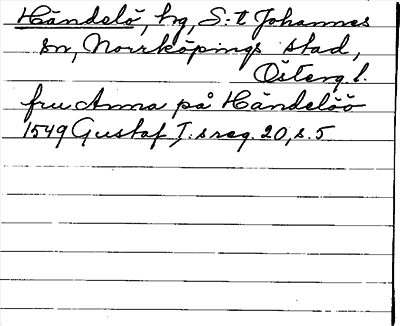 Händelö, hg, S:t Johannes
sn, Norrköpings stad,
Österg l.
fru Anna på Händelöö
1549 Gustaf I:s reg. 20, s. 5